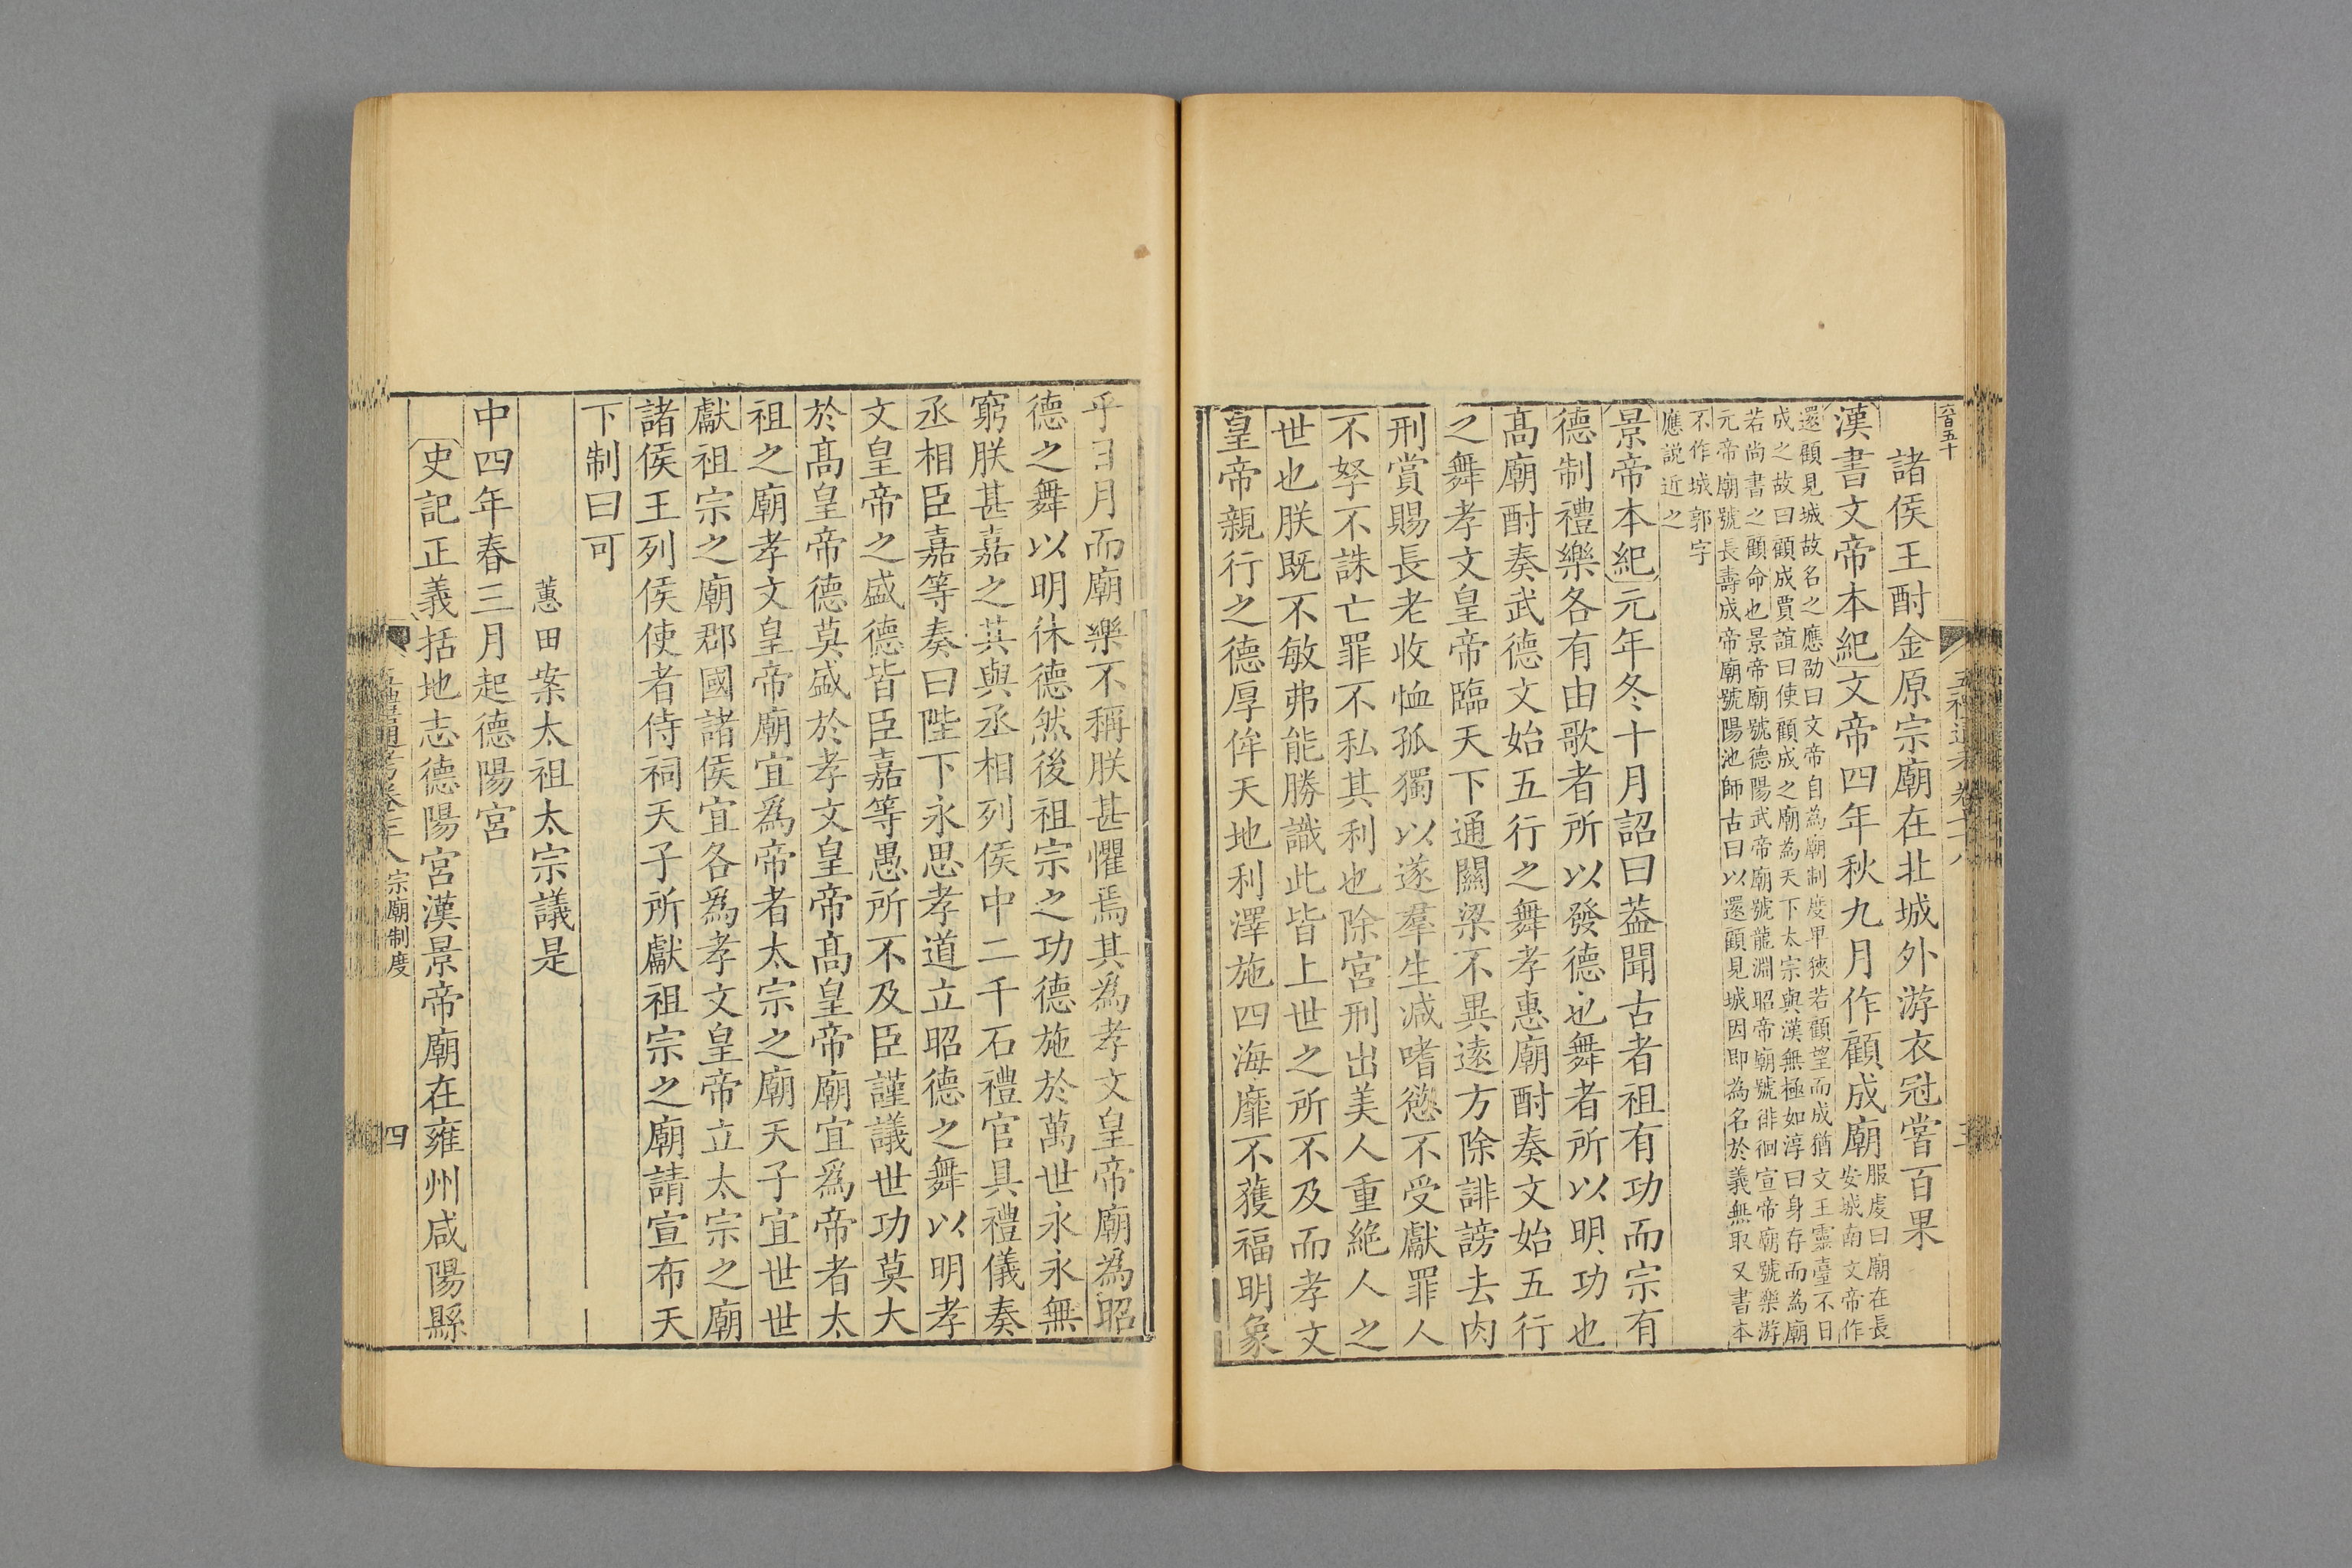 六百五十
諸侯王酎金原宗廟在北城外游衣冠嘗百果
漢書文帝本紀文帝四年秋九月作顧成廟服虔曰廟在長
安城南文帝作
還顧見城故名之應劭曰文帝自為廟制度卑狹若顧望而成猶文王靈臺不日
成之故曰顧成賈誼曰使顧成之廟為天下太宗與漢無極如淳曰身存而為廟
若尚書之顧命也景帝廟號德陽武帝廟號龍淵昭帝廟號徘徊宣帝廟號樂游
元帝廟號長壽成帝廟號陽池師古曰以還顧見城因即為名於義無取又書本
不作城郭字
應說近之
景帝本紀元年冬十月詔曰葢聞古者祖有功而宗有
德制禮樂各有由歌者所以發德也舞者所以明功也
髙廟酎奏武德文始五行之舞孝惠廟酎奏文始五行
之舞孝文皇帝臨天下通關梁不異逺方除誹謗去肉
刑賞賜長老收恤孤獨以遂羣生减嗜慾不受獻罪人
不孥不誅亡罪不私其利也除宮刑出美人重絶人之
世也朕既不敏弗能勝識此皆上世之所不及而孝文
皇帝親行之德厚侔天地利澤施四海靡不獲福明象
乎日月而廟樂不稱朕甚懼焉其為孝文皇帝廟為昭
德之舞以明休德然後祖宗之功德施於萬世永永無
窮朕甚嘉之其與丞相列侯中二千石禮官具禮儀奏
丞相臣嘉等奏曰陛下永思孝道立昭德之舞以明孝
文皇帝之盛德皆臣嘉等愚所不及臣謹議世功莫大
於髙皇帝德莫盛於孝文皇帝髙皇帝廟宜為帝者太
祖之廟孝文皇帝廟宜為帝者太宗之廟天子宜世世
獻祖宗之廟郡國諸侯宜各為孝文皇帝立太宗之廟
諸侯王列侯使者侍祠天子所獻祖宗之廟請宣布天
下制曰可
蕙田案太祖太宗議是
中四年春三月起德陽宮
史記正義括地志德陽宮漢景帝廟在雍州咸陽縣
宗廟制度
四